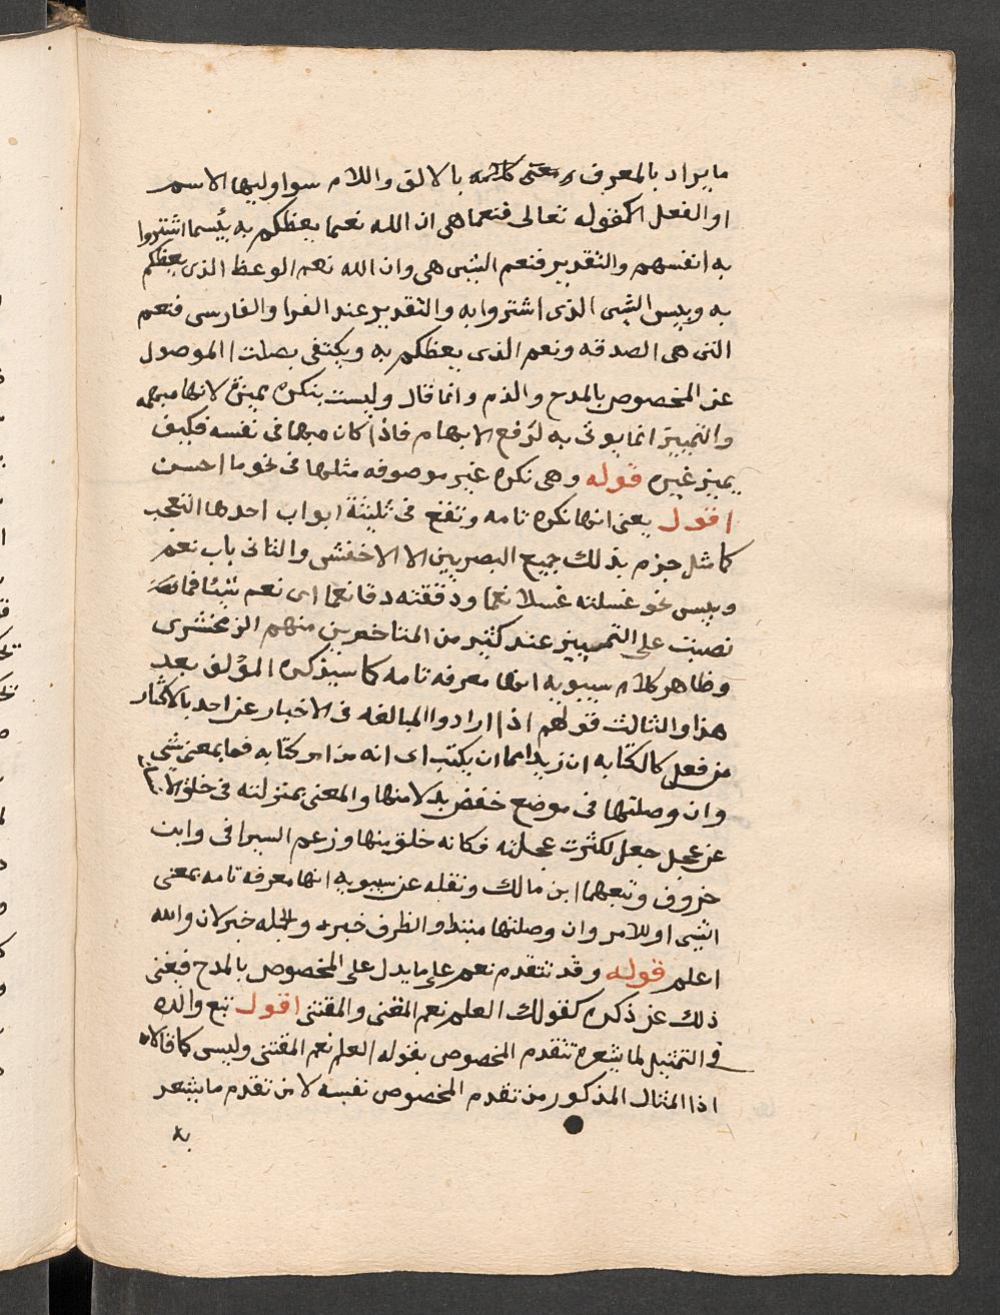 ما يراد بالمعرف ومعنى كلامه بالالف واللام سوا وليها الاسم
او الفعل كقوله تعالى فنعما هى ان الله نعما يعظكم به بئسما اشتروا
به انفسهم والتقدير فنعم الشى هى وان الله نعم الوعظ الذى يعظكم
به وبيس الشى الذى اشتروا به والتقدير عند الفرا والفارسى فنعم
التى هى الصدقه ونعم الذى يعظكم به ويكتفى بصلت الموصول
عن المخصوص بالمدح والذم وانما قال وليست بنكره مميزة لانها مبهمه
والتمييز انما يوتى به لرفع الابهام فاذا كان مبهما فى نفسه فكيف
يميز غيره قوله وهى نكره غير موصوفه مثلها فى نحو ما احسن
اقول يعنى انها نكره تامه وتقع فى ثلثة ابواب احدها التعجب
كما مثل جزم بذلك جميع البصريين الا الاخفش والثانى باب نعم
وبيس نحو غسلته غسلا نعما ودققته دقا نعما اى نعم شيئا فما
نصبت على التمييز عند كثير من المتاخرين منهم الزمخشرى
وظاهر كلام سيبويه انها معرفه تامه كما سيذكره المؤلف بعد
هذا والثالث قولهم اذا ارادوا المبالغه فى الاخبار عن احد بالاكثار
من فعل كالكتابه ان زيدا مما ان يكتب اى انه من امر كتابه فما بمعنى شى
وان وصلتها فى موضع خفض بدلا منها والمعنى بمنزلته فى خلق الا
عن عجل جعل لكثرت عجلته فكانه خلق منها وزعم السيرافى وابن
خروف وتبعهما ابن مالك ونقله عن سيبويه انها معرفه تامه بمعنى
الشى او للامر وان وصلتها مبتدا والظرف خبره والجمله خبر لان والله
اعلم قوله وقد تتقدم نعم على ما يدل على المخصوص بالمدح فيغنى
ذلك عن ذكره كقولك العلم نعم المقنى والمقتنى اقول تبع والده
فى التمثيل لما يشعره تتقدم المخصوص بقوله العلم نعم المقتنى وليس كما قالاه
اذا المثال المذكور من تقدم المخصوص نفسه لا من تقدم ما يشعر
به